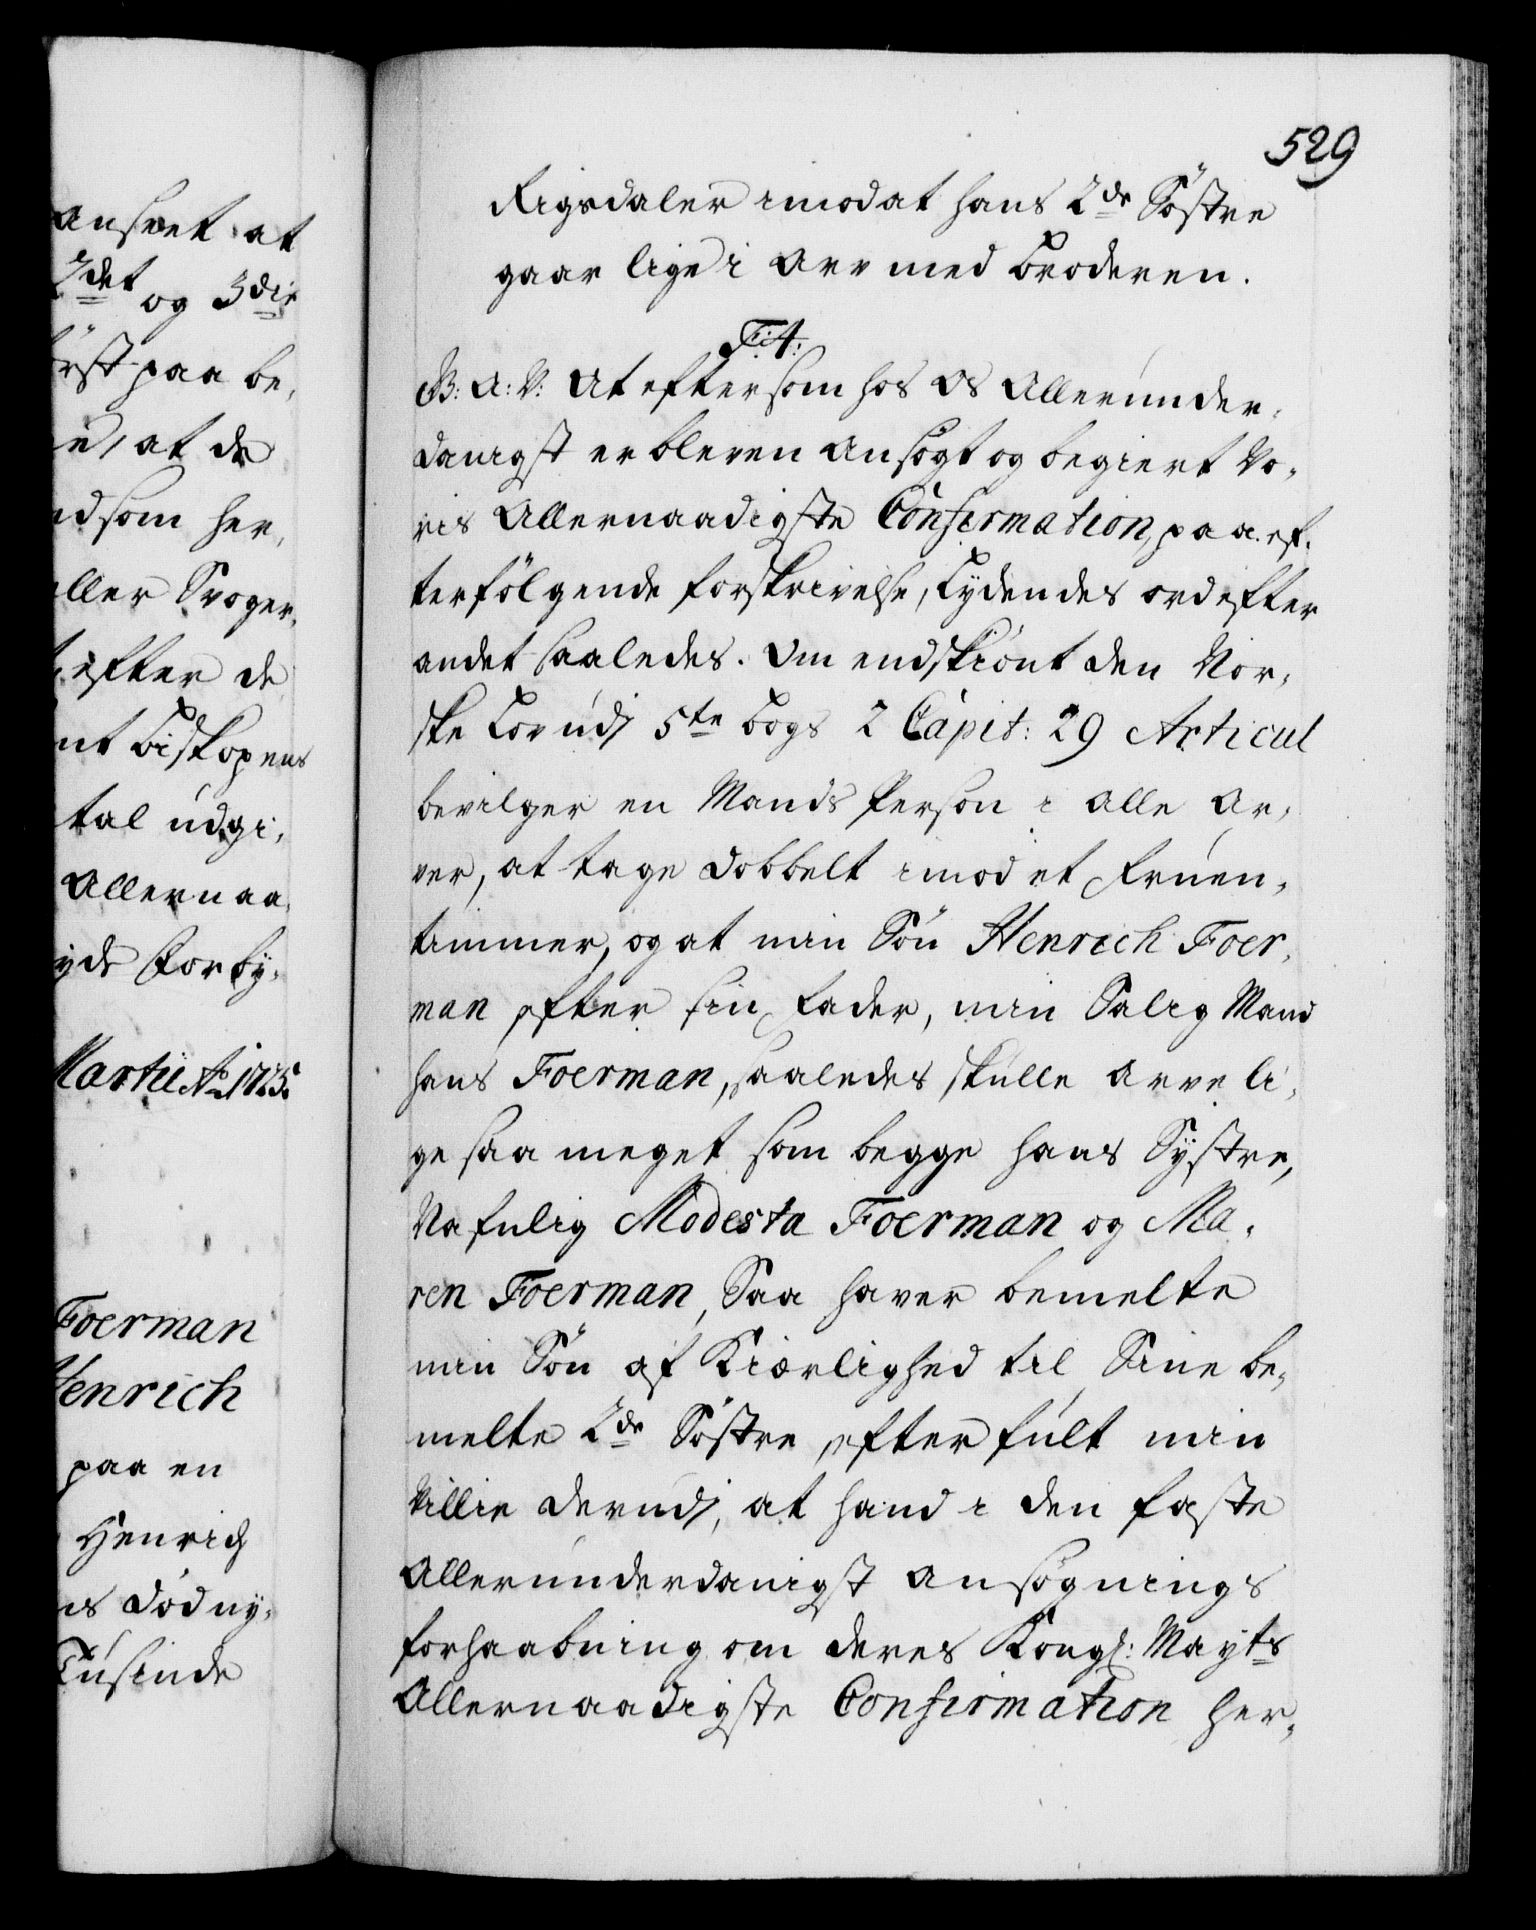 529
Rigsdaler imod at hans 2de Söstre
gaar lige i Arv med Broderen.
F: 4:
G: A: V: At eftersom hos Os Allerunder-
danigst er bleven Ansögt og begiert Vo-
ris Allernaadigste Confirmation, paa ef-
terfölgende forskrivelse, Lydendes ord efter
andet Saaledes. Om endskiönt den Nor-
ske Lov udj 5te Bogs 2 Capit: 29 Articul
bevilger en Mands Person i Alle Ar-
ver, at tage dobbelt imod et Fruen-
timmer, og at min Sön Henrich Foer-
man efter sin Fader, min Salig Mand
Hans Foerman, saaledes skulle Arve li-
ge saa meget som begge hans Systre,
Nafnlig Modesta Foerman og Ma-
ren Foerman, Saa haver bemelte
min Sön af Kiærlighed til Sine be-
melte 2de Söstre, efterfult min
Villie derudj, at hand i den faste
Allerunderdanigst Ansögnings
forhaabning om deres Kongl: Mayts
Allernaadigste Confirmation her-
Anseet at
2det og 3die
förstpaa be-
at de
som her-
eller Svoger-
efter de
Biskopens
tal udgi-
Allernaa-
Forby-
Martii Ao 1725.
Foerman
Henrich
paa en
Henrich
död ny-
Tusinde